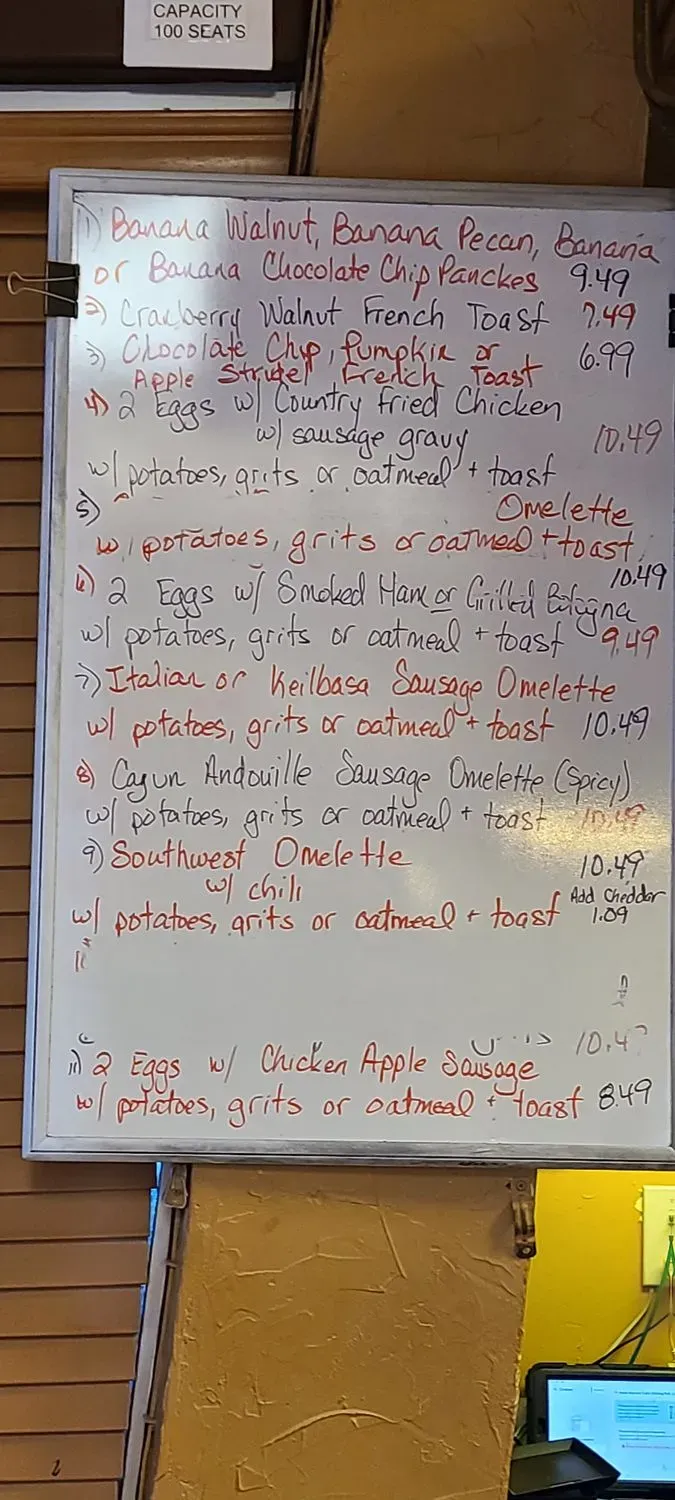 CAPACITY
100 SEATS
1) Banana Walnut, Banana Pecan, Banana
or Banana Chocolate Chip Panckes 9.49
2) Cranberry Walnut French Toast 7.49
3) Chocolate Chip, Pumpkin or 6.99
Apple Strudel French Toast
4) 2 Eggs w/ Country Fried Chicken
w/ sausage gravy 10.49
w/ potatoes, grits or oatmeal + toast
5) Omelette
w/ potatoes, grits or oatmeal + toast
10.49
6) 2 Eggs w/ Smoked Ham or Grilled Bologna
w/ potatoes, grits or oatmeal + toast 9.49
7) Italian or Keilbasa Sausage Omelette
w/ potatoes, grits or oatmeal + toast 10.49
8) Cajun Andouille Sausage Omelette (Spicy)
w/ potatoes, grits or oatmeal + toast 10.49
9) Southwest Omelette 10.49
w/ chili
w/ potatoes, grits or oatmeal + toast Add Cheddar 1.09
11) 2 Eggs w/ Chicken Apple Sausage
w/ potatoes, grits or oatmeal + toast 8.49